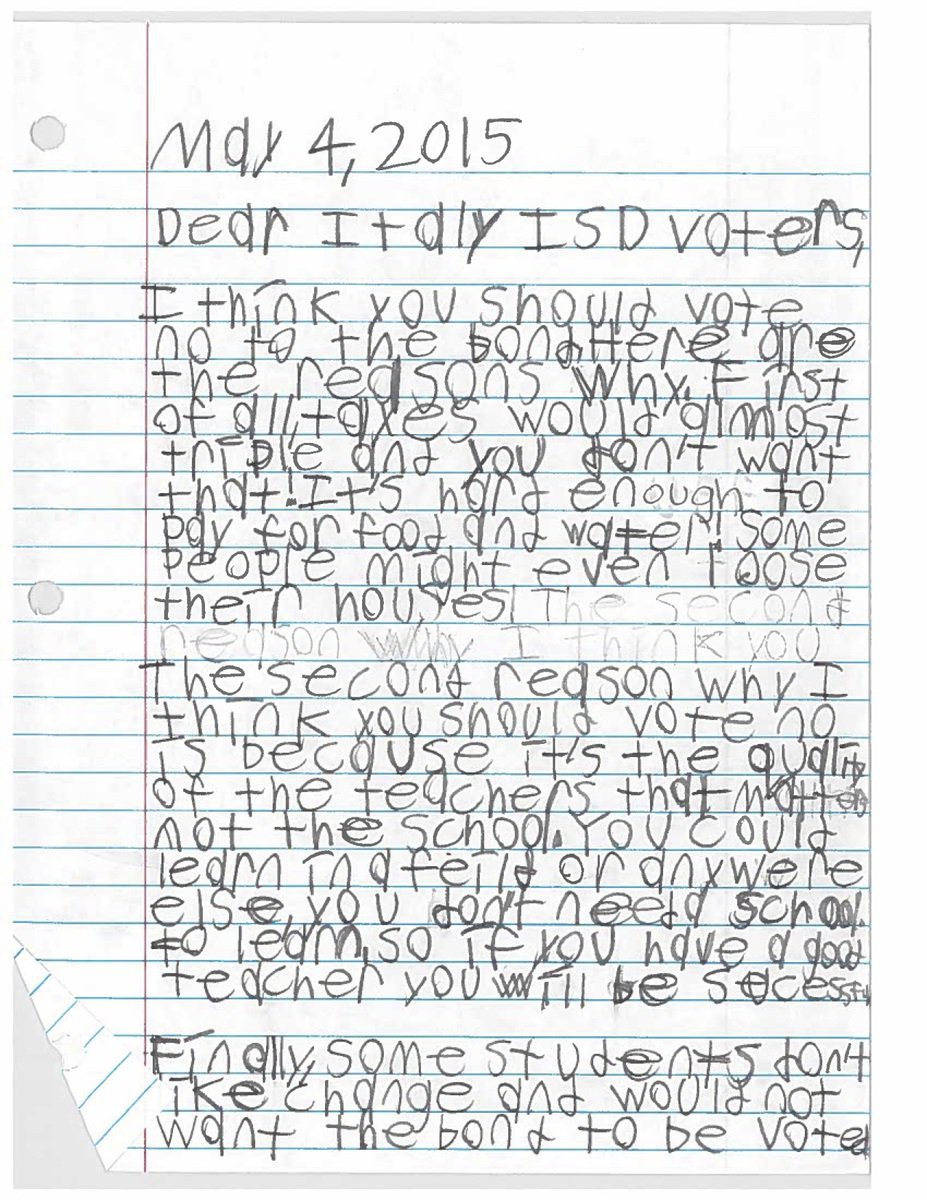 May 4, 2015
Dear Italy ISD voters,
I think you should vote
no to the bond. Here are
the reasons why. First
of all, taxes would almost
triple and you don't want
that! It's hard enough to
pay for food and water! Some
people might even loose
their houses! The second
reason why I think you
The second reason why I
think you should vote no
is because it's the quality
of the teachers that matters
not the school. You could
learn in a feild or anywere
else, you don't need school
to learn, so if you have a good
teacher you will be sucessful
Finally, some students don't
like change and would not
want the bond to be voted